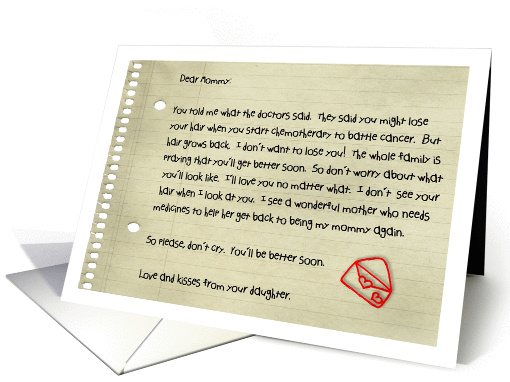 Dear Mommy:
You told me what the doctors said. They said you might lose
your hair when you start chemotherapy to battle cancer. But
hair grows back. I don't want to lose you! The whole family is
praying that you'll get better soon. So don't worry about what
you'll look like. I'll love you no matter what. I don't see your
hair when I look at you. I see a wonderful mother who needs
medicines to help her get back to being my mommy again.
So please, don't cry. You'll be better soon.
Love and kisses from your daughter.